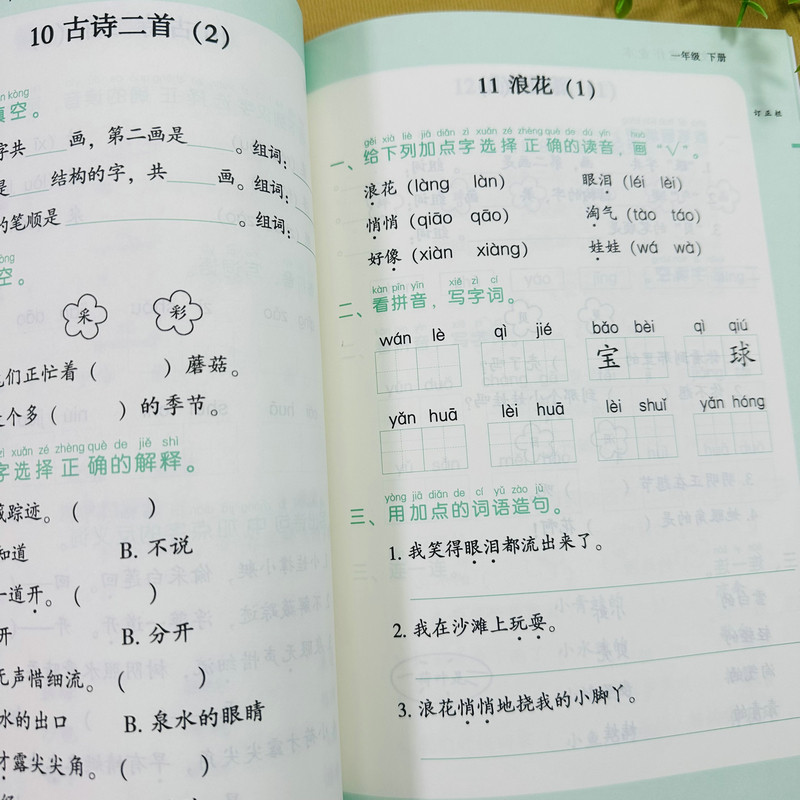 10 古诗二首（2）
kòng
填空。
字共____画，第二画是____。组词：
是____结构的字，共____画。组词：
的笔顺是____。组词：
kòng
空。
采 彩
们正忙着（ ）蘑菇。
个多（ ）的季节。
zì xuǎn zé zhèng què de jiě shì
字选择正确的解释。
踪迹。（ ）
知道 B. 不说
一道开。（ ）
开 B. 分开
无声惜细流。（ ）
水的出口 B. 泉水的眼睛
才露尖尖角。（ ）
一年级 下册
订正栏
11 浪花（1）
gěi xià liè jiā diǎn zì xuǎn zé zhèng què de dú yīn huà
一、给下列加点字选择正确的读音，画“√”。
浪花（làng làn） 眼泪（léi lèi）
悄悄（qiāo qāo） 淘气（tào táo）
好像（xiàn xiàng） 娃娃（wá wà）
kàn pīn yīn xiě zì cí
二、看拼音，写字词。
wán lè qì jié bǎo bèi qì qiú
宝 球
yǎn huā lèi huā lèi shuǐ yǎn hóng
yòng jiā diǎn de cí yǔ zào jù
三、用加点的词语造句。
1. 我笑得眼泪都流出来了。
2. 我在沙滩上玩耍。
3. 浪花悄悄地挠我的小脚丫。